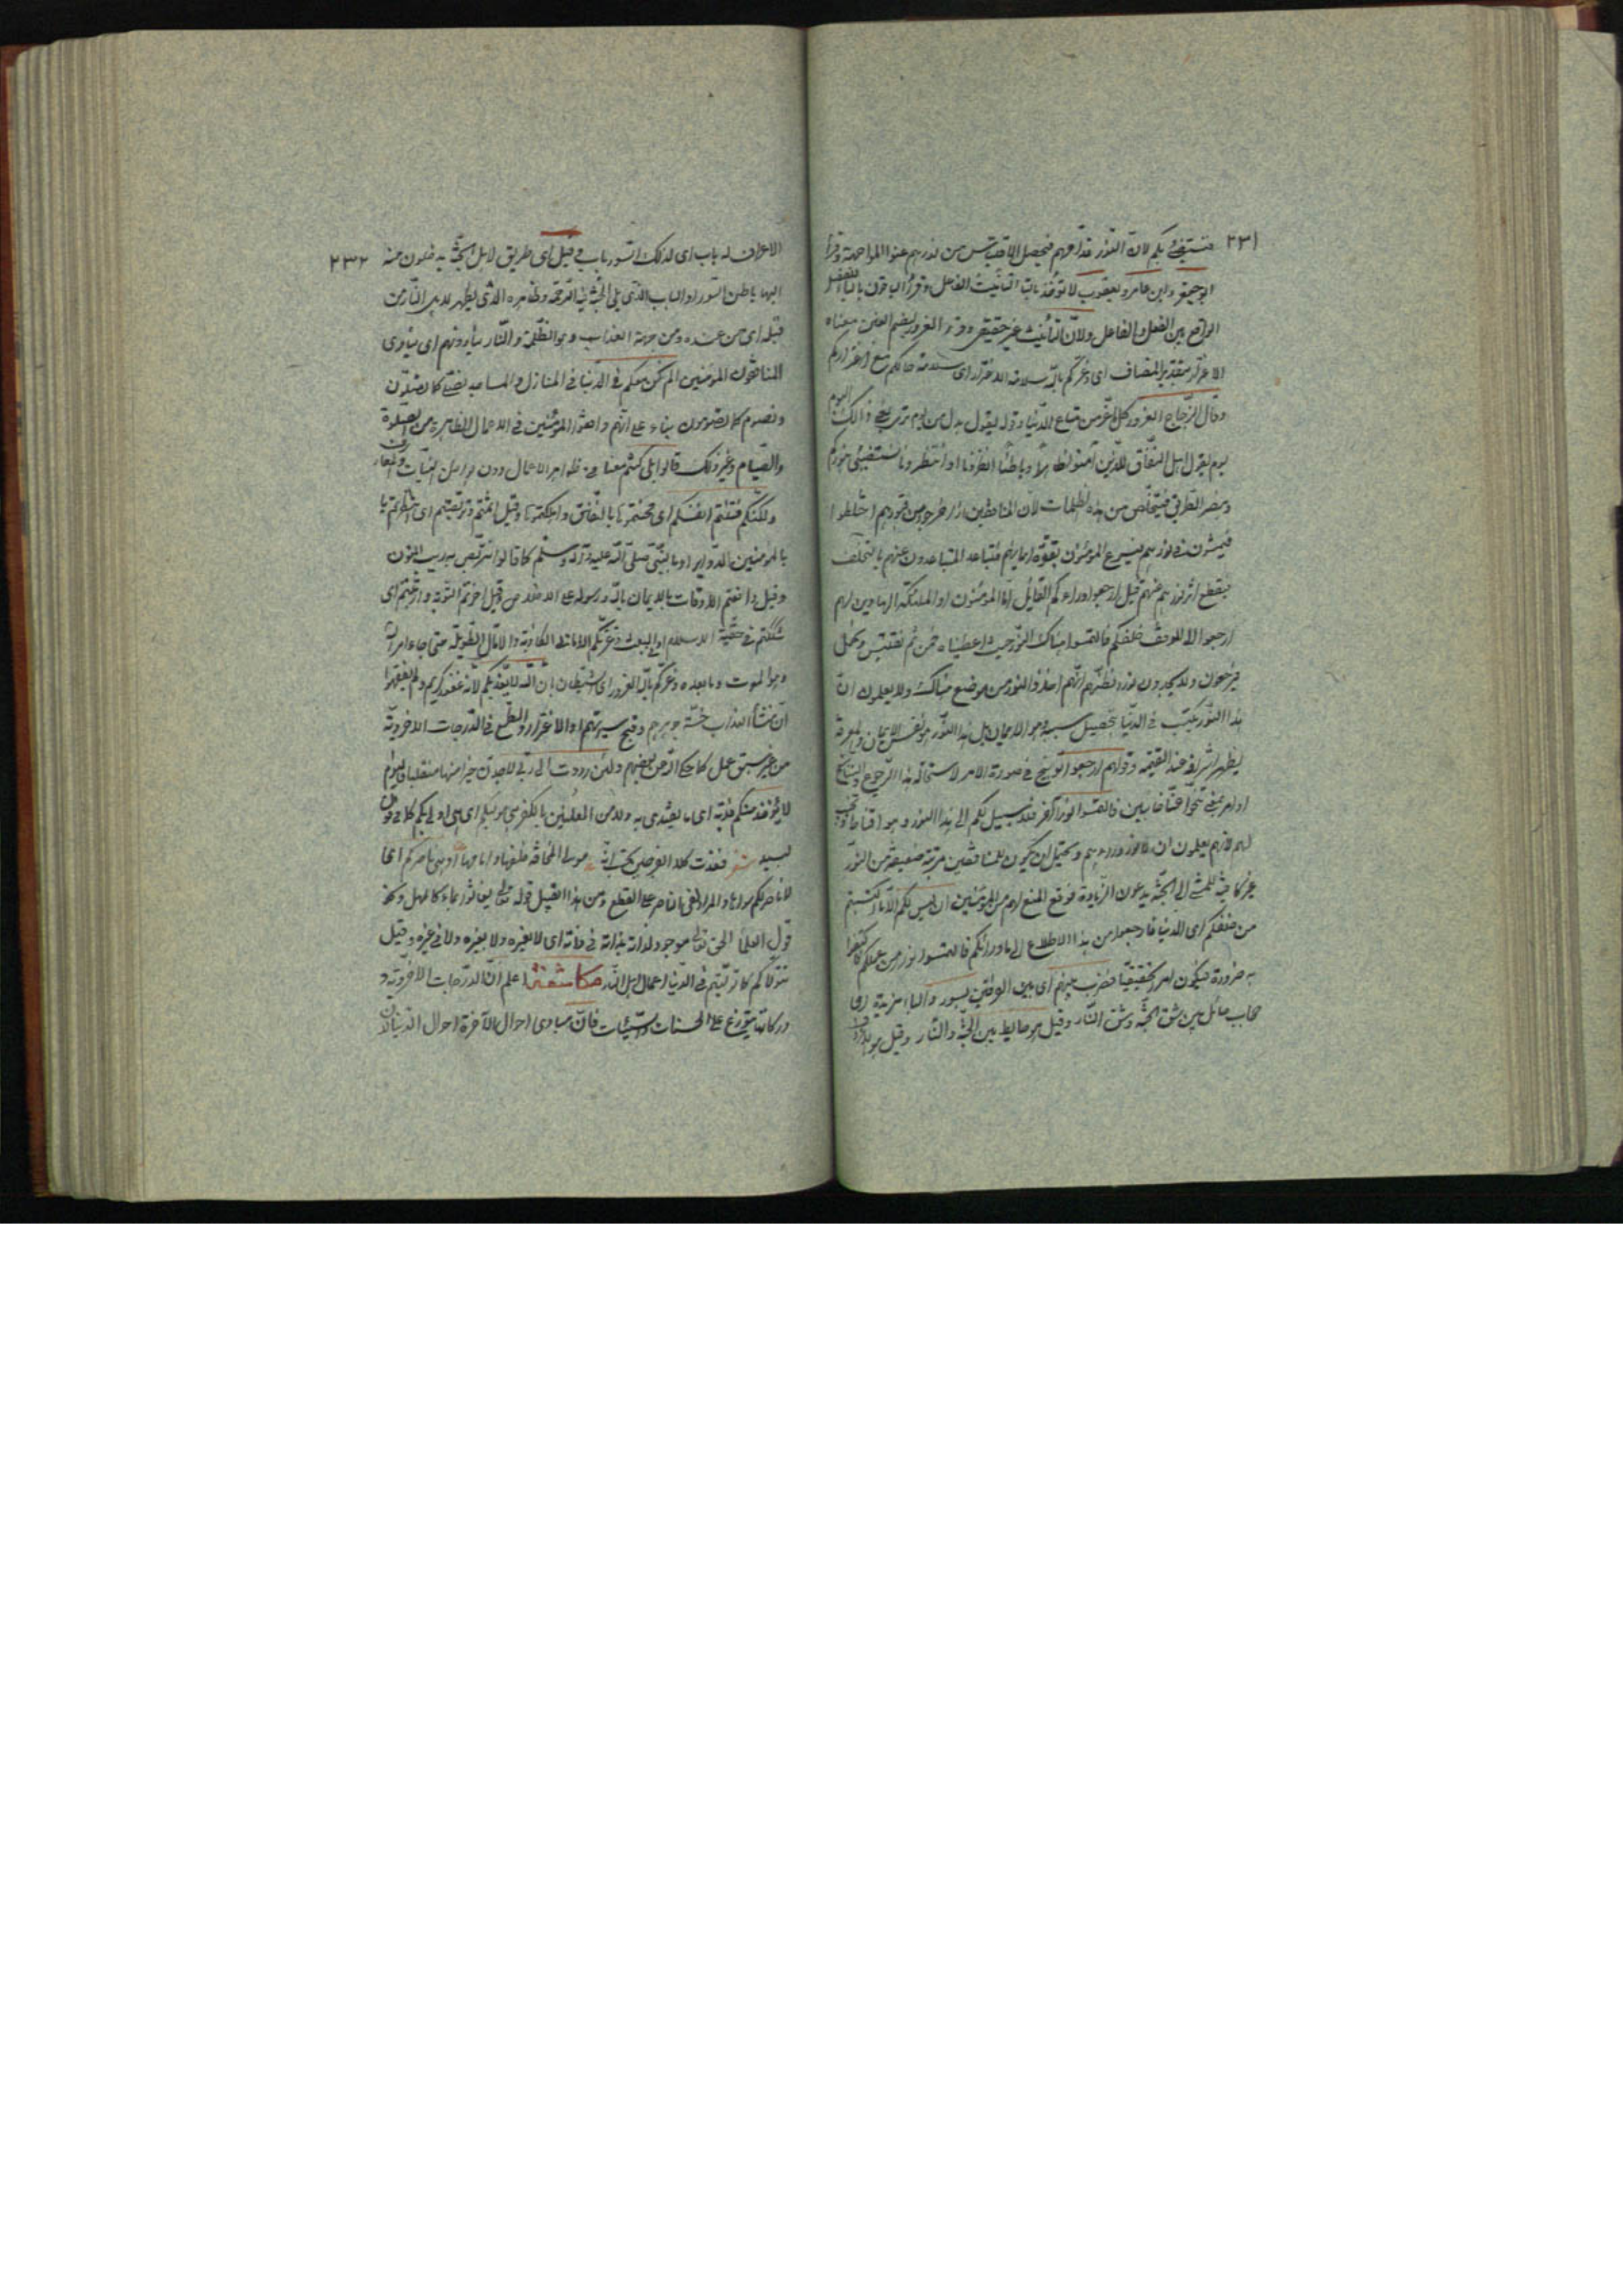 ٢٣١
فنستضئ بكم لان النور قدامهم فيحصل الاقتباس من نورهم عند المواجهة وقرأ
ابو جعفر وابن عامر ويعقوب لا تؤخذ بالتاء لتأنيث الفاعل وقرأ الباقون بالياء للفصل
الواقع بين الفعل والفاعل ولان التأنيث غير حقيقى وقرئ الغرور بضم الغين معناه
الاغترار بتقدير المضاف اى وغركم بالله سلامة الاغترار اى سلامة حالكم مع اغتراركم
وقال الزجاج الغرور كل ما غر من متاع الدنيا وقوله يقول بدل من يوم ترى يعنى ذلك اليوم
يوم يقول اهل النفاق للذين آمنوا ظاهرا وباطنا انظرونا او انتظرونا نستضئ بنوركم
ونبصر الطريق فنتخلص من هذه الظلمات لان المنافقين اذا خرجوا من قبورهم اختلطوا
فيمشون فى نورهم فيسرع المؤمنون بقوة ايمانهم فتباعد المتباعدون عنهم بالتخلف
فينقطع اثر نورهم عنهم قيل ارجعوا وراءكم القائل اما المؤمنون او الملئكة الهادين لهم
ارجعوا الى الموقف خلفكم فالتمسوا هناك النور حيث اعطيناه فمن ثم نقتبس
فيرجعون ولا يجدون نورا لظنهم انهم اخذوا النور من موضع هناك ولا يعلمون ان
هذا النور يكتب فى الدنيا بتحصيل سببه وهو الايمان بل هذا النور هو نفس الايمان والمعرفة
يظهر اشراقه عند القيمة وقولهم ارجعوا توبيخ فى صورة الامر لاستحالة هذا الرجوع
او امر بمعنى تنحوا عنا خائبين فالتمسوا نورا آخر فلا سبيل لكم الى هذا النور وهو اقناط
لهم لانهم يعلمون ان لا نور وراءهم ويحتمل ان يكون للمنافقين مرتبة ضعيفة من النور
غير كافية للمشى الى الجنة يدعون الزيادة فوقع المنع لهم من المؤمنين ان ليس لكم الا ما اكتسبتم
من خلفكم اى الدنيا فارجعوا من هذا الاطلاع الى ما ورائكم فالتمسوا نورا من عملكم
به ضرورة فيكون امرا حقيقيا فضرب بينهم اى بين الفريقين بسور والباء مزيدة اى
حجاب حائل بين شق الجنة وشق النار وقيل هو حايط بين الجنة والنار وقيل هو
٢٣٢
الاعراف له باب اى لذلك السور باب وقيل اى طريق لاهل الجنة يدخلون منه
اليها باطن السور او الباب الذى يلى الجنة فيه الرحمة وظاهره الذى يظهر لاهل النار من
قبله اى من عنده ومن جهته العذاب وهو الظلمة والنار ينادونهم اى ينادى
المنافقون المؤمنين الم نكن معكم فى الدنيا فى المنازل والمساجد نصلى كما تصلون
ونصوم كما تصومون بناء على انهم وافقوا المؤمنين فى الاعمال الظاهرة من الصلوة
والصيام وغير ذلك قالوا بلى كنتم معنا فى ظواهر الاعمال دون بواطن النيات والمعارف
ولكنكم فتنتم انفسكم اى محنتموها بالنفاق واهلكتموها وقيل اثمتم وتربصتم اى انتظرتم
بالمؤمنين الدواير او بالنبى صلى الله عليه وآله وسلم كما قالوا نتربص به ريب المنون
وقيل دافعتم الاوقات بالايمان بالله ورسوله على الاخلاص وقيل اخرتم التوبة وارتبتم اى
شككتم فى حقية الاسلام او البعث وغرتكم الامانى الكاذبة والآمال الطويلة حتى جاء امر الله
وهو الموت وما بعده وغركم بالله الغرور اى الشيطان بان الله لا يعذبكم لانه غفور كريم ولم يفقهوا
ان منشأ العذاب خسة جوهرهم وقبح سيرتهم او الاغترار والطمع فى الدرجات الاخروية
من غير سبق عمل كما حكى الله عن بعضهم ولئن رددت الى ربى لاجدن خيرا منها منقلبا فاليوم
لا يؤخذ منكم فدية اى ما يفتدى به ولا من المعلنين بالكفر هى موليكم اى هى اولى بكم كما فى قول
لبيد شعر فغدت كلا الفرجين تحسب انه مولى المخافة خلفها وامامها او هى ناصركم اى
لا ناصر لكم سواها والمراد نفى الناصر على القطع ومن هذا القبيل قوله تعالى يغاثوا بماء كالمهل
قول العلماء الحق تعالى موجود لذاته بذاته فى ذاته اى لا لغيره ولا بغيره ولا فى غيره وقيل
تتولاكم كما توليتم فى الدنيا اعمال اهل النار مكاشفة اعلم ان الدرجات الاخروية و
دركاتها يتوزع على الحسنات والسيئات فان مبادى احوال الآخرة احوال الدنيا